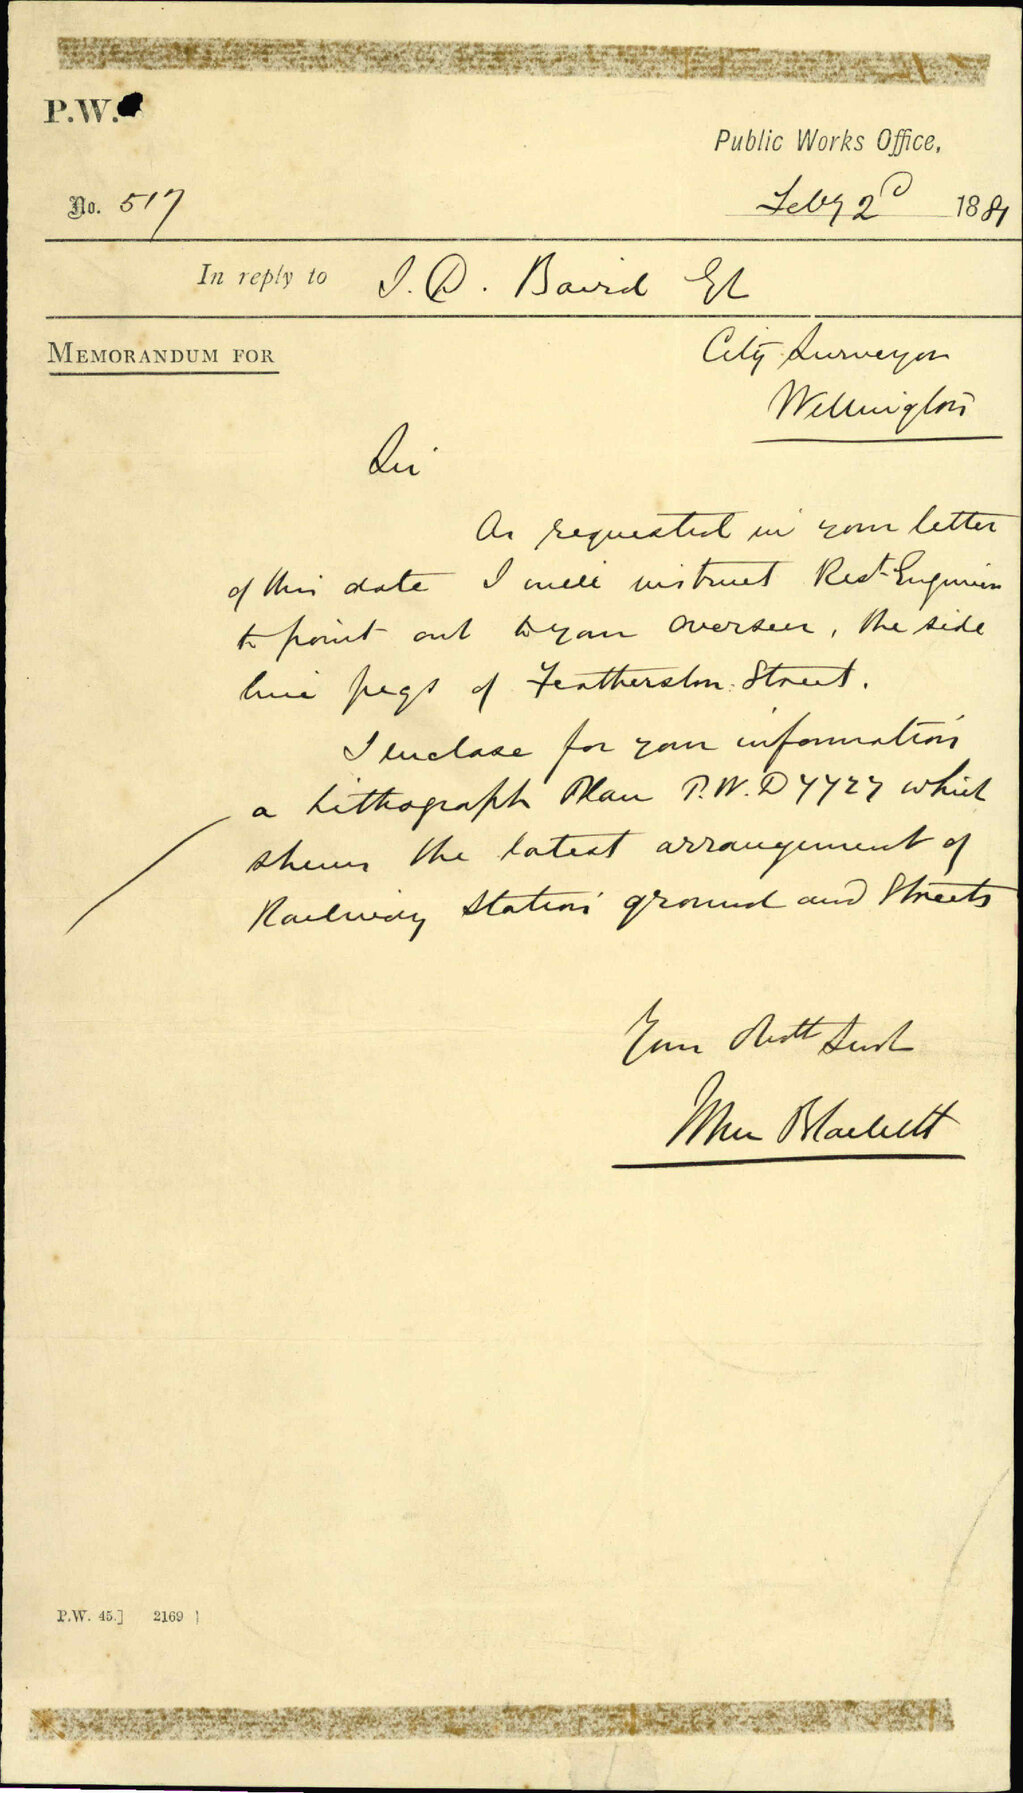 P.W.
Public Works Office,
No. 517
Feby 2d 1881
In reply to J. D. Baird Esq
MEMORANDUM FOR
City Surveyor
Wellington
Sir
As requested in your letter
of this date I will instruct Rest Engineer
to point out to your overseer, the side
line pegs of Featherston Street.
I enclose for your information
a Lithograph Plan P.W.D 7727 which
shews the latest arrangement of
Railway Station ground and Streets
Your Obdt Servt
Wm Blackett
P.W. 45.] 2169